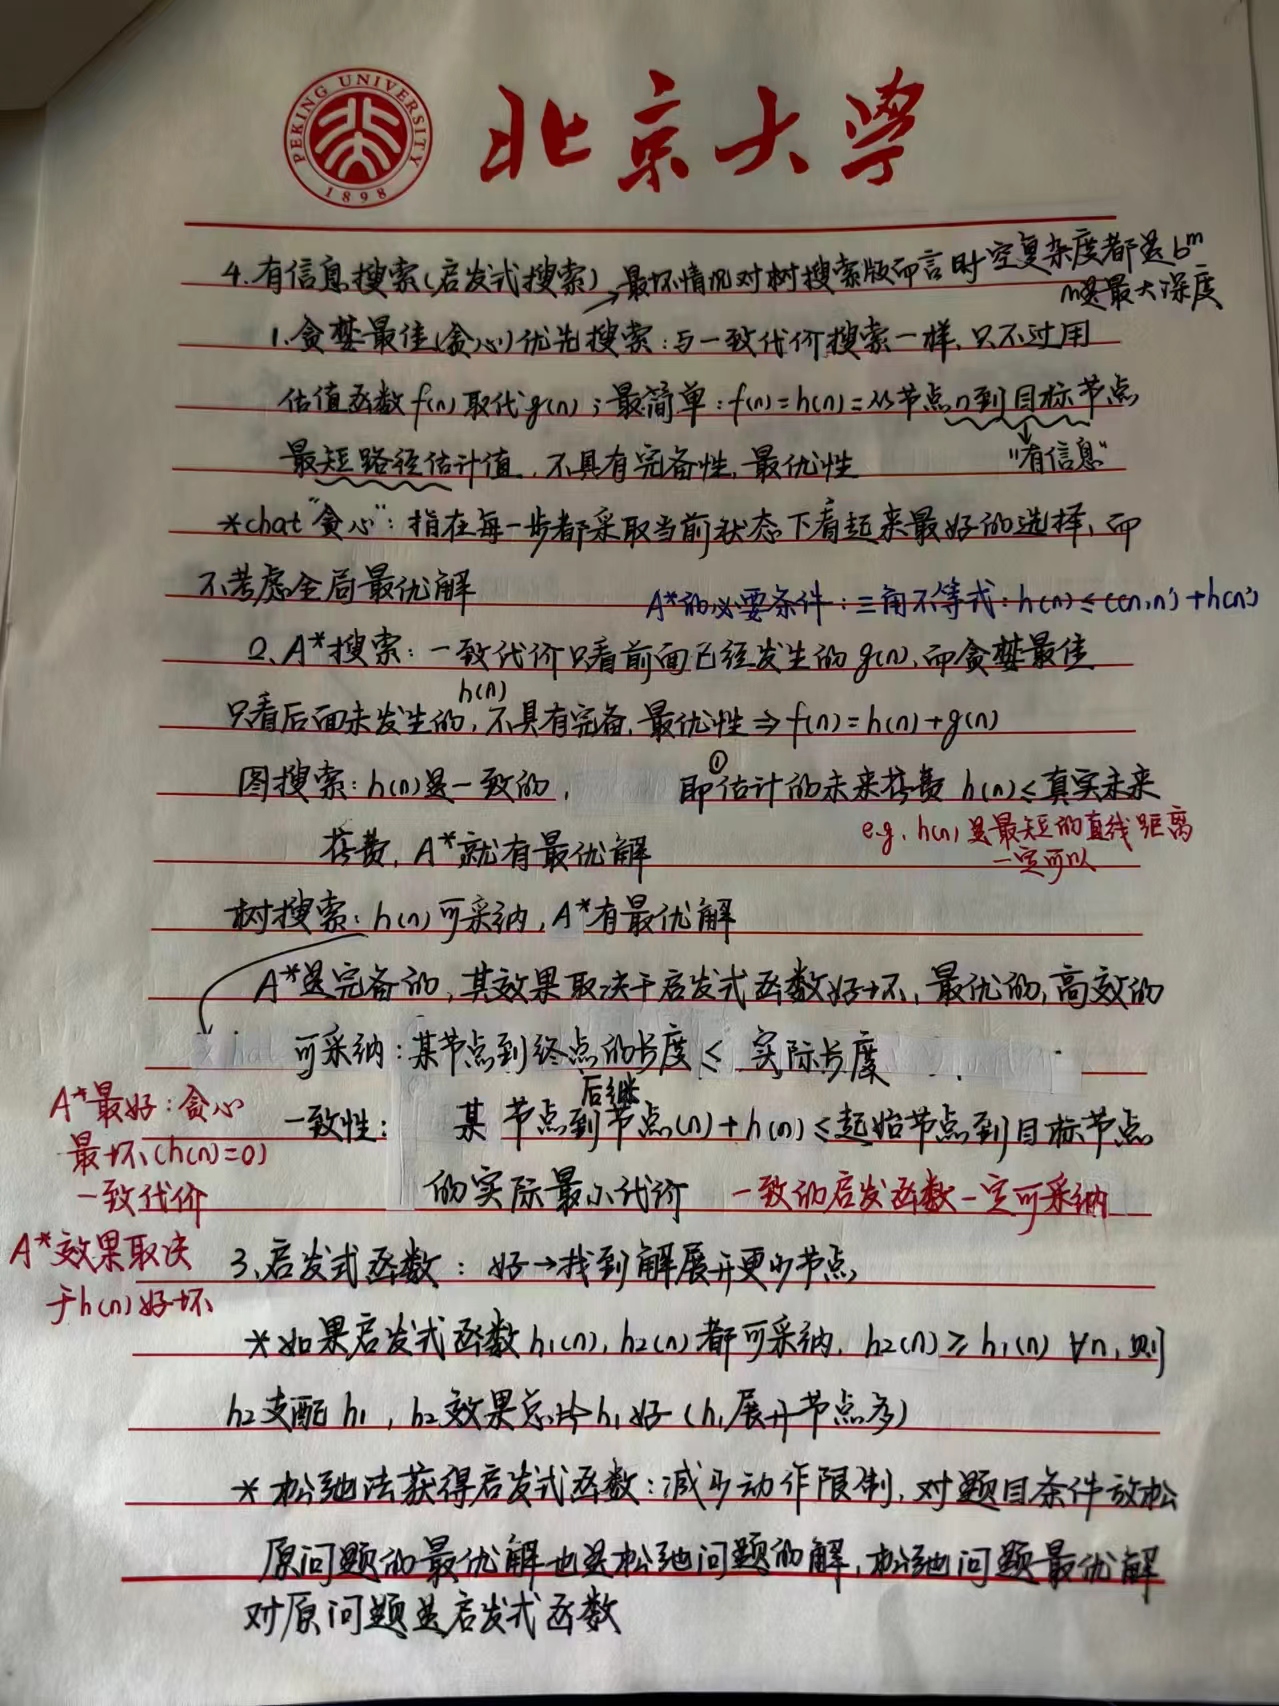 PEKING UNIVERSITY
1898
北京大学
4.有信息搜索(启发式搜索)
最坏情况对树搜索版而言时空复杂度都是b^m
m是最大深度
1.贪婪最佳(贪心)优先搜索:与一致代价搜索一样,只不过用
估值函数f(n)取代g(n);最简单:f(n)=h(n)=从节点n到目标节点
最短路径估计值,不具有完备性,最优性
"有信息"
*chat"贪心":指在每一步都采取当前状态下看起来最好的选择,而
不考虑全局最优解
A*的必要条件:三角不等式:h(n)≤c(n,n')+h(n')
2.A*搜索:一致代价只看前面已经发生的g(n),而贪婪最佳
h(n)
只看后面未发生的,不具有完备,最优性⇒f(n)=h(n)+g(n)
①
图搜索:h(n)是一致的, 即估计的未来花费h(n)≤真实未来
e.g. h(n)是最短的直线距离
一定可以
花费,A*就有最优解
树搜索:h(n)可采纳,A*有最优解
A*是完备的,其效果取决于启发式函数好坏,最优的,高效的
可采纳:某节点到终点的长度≤实际长度
后继
一致性:某节点到节点(n)+h(n)≤起始节点到目标节点
的实际最小代价 一致的启发函数一定可采纳
A*最好:贪心
最坏(h(n)=0)
一致代价
A*效果取决
于h(n)好坏
3.启发式函数:好→找到解展开更少节点
*如果启发式函数h1(n),h2(n)都可采纳,h2(n)≥h1(n) ∀n,则
h2支配h1,h2效果总比h1好(h1展开节点多)
*松弛法获得启发式函数:减少动作限制,对题目条件放松
原问题的最优解也是松弛问题的解,松弛问题最优解
对原问题是启发式函数